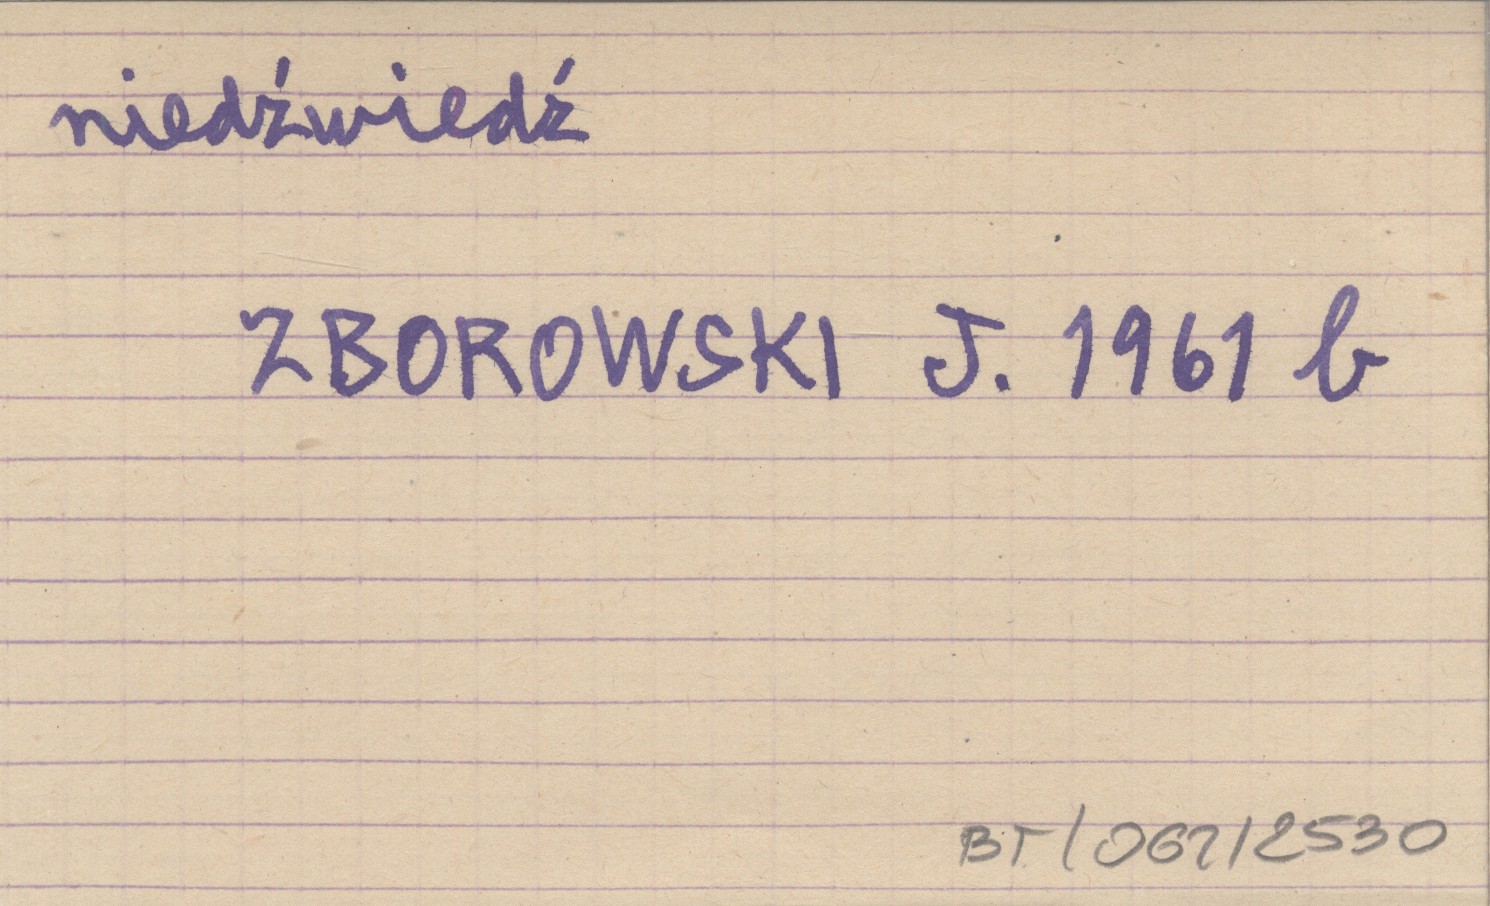 niedźwiedź
ZBOROWSKI J. 1961 b
BT/067/2530